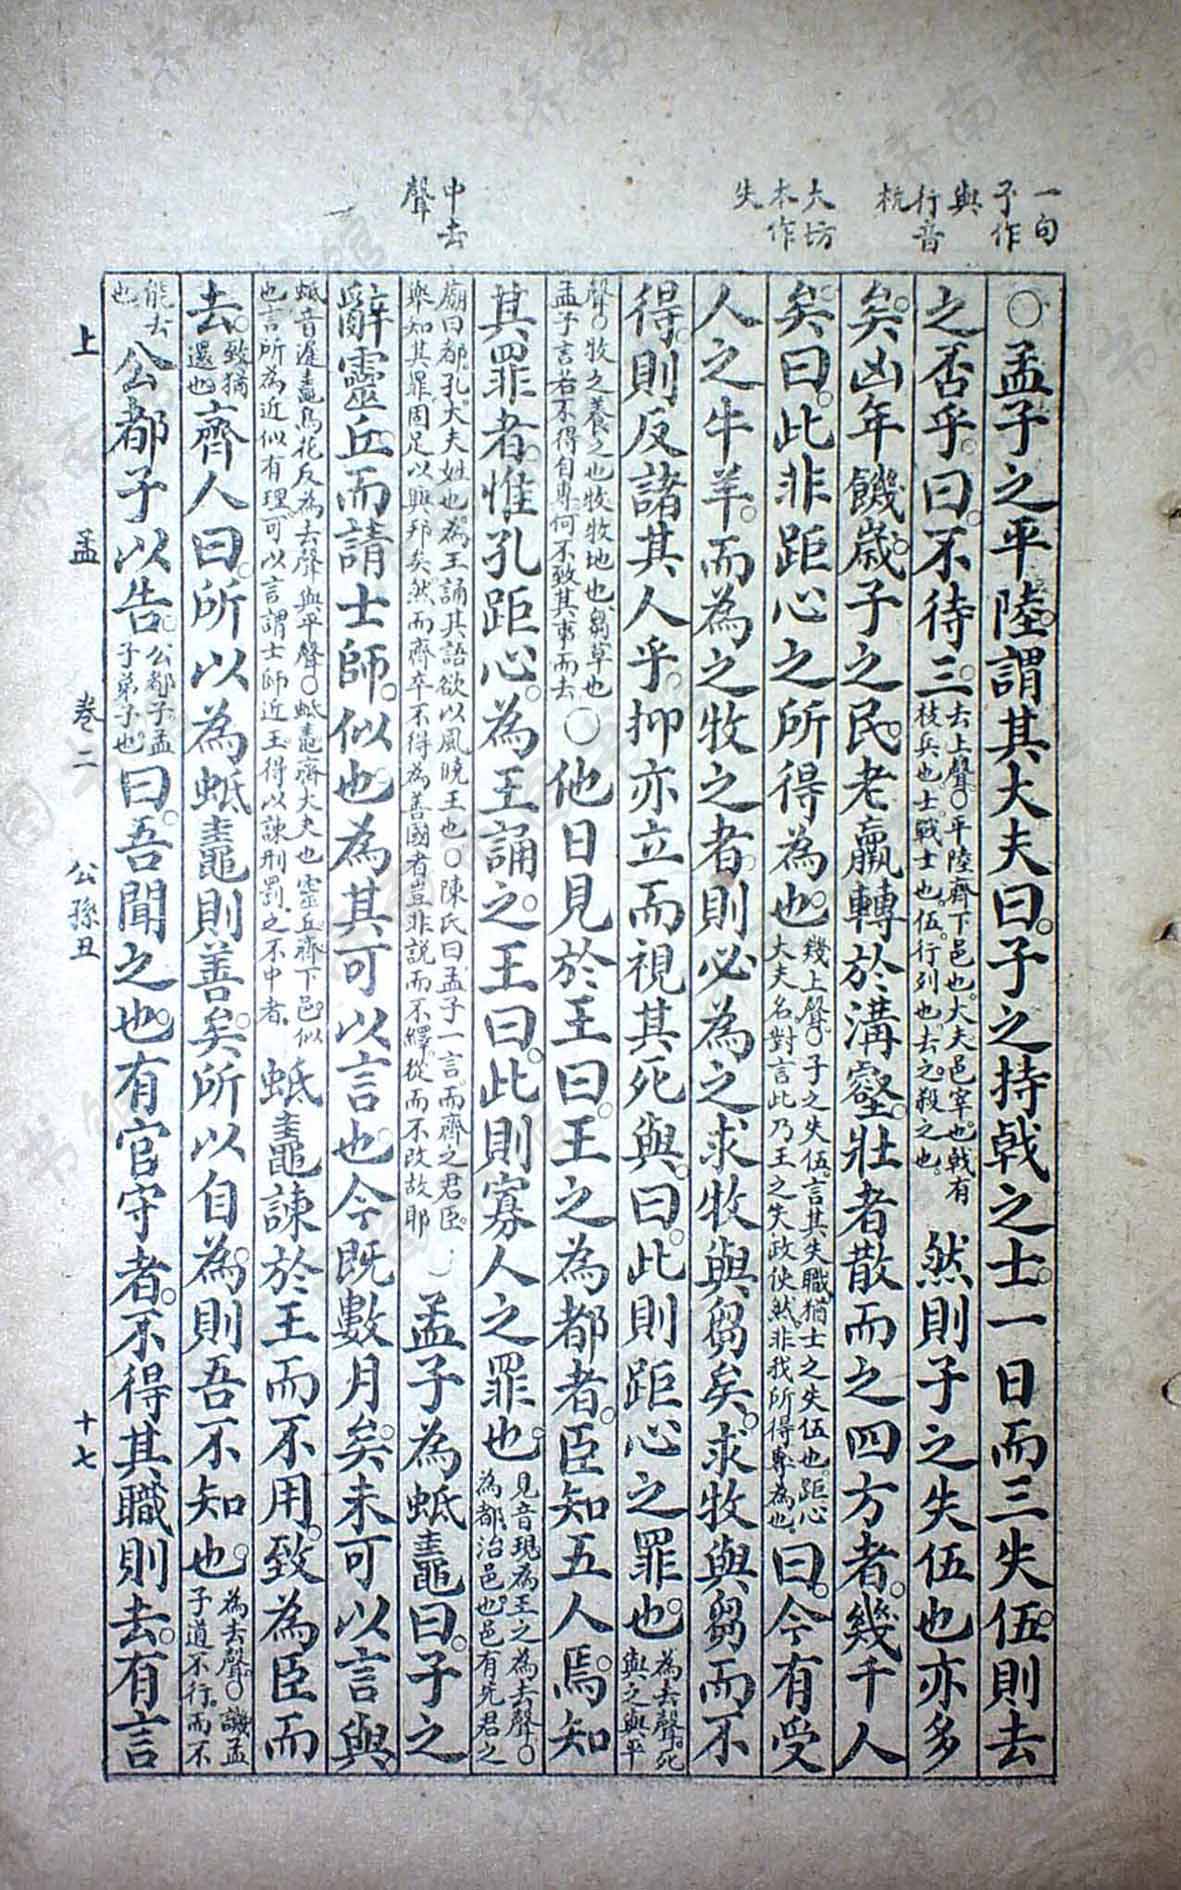 一句
子作
與
行音
杭
大坊
本作
失
中去
聲
○孟子之平陸。謂其大夫曰。子之持戟之士。一日而三失伍。則去
之否乎。曰。不待三。去上聲○平陸齊下邑也。大夫邑宰也。戟有枝兵也。士戰士也。伍行列也。去之殺之也。然則子之失伍也亦多
矣。凶年饑歲。子之民。老羸轉於溝壑。壯者散而之四方者。幾千人
矣。曰。此非距心之所得為也。幾上聲。○子之失伍。言其失職猶士之失伍也。距心大夫名。對言此乃王之失政使然。非我所得專為也。曰。今有受
人之牛羊。而為之牧之者。則必為之求牧與芻矣。求牧與芻而不
得。則反諸其人乎。抑亦立而視其死與。曰。此則距心之罪也。為去聲。死與之與平
聲○牧之養之也牧牧地也芻草也孟子言若不得自專何不致其事而去○他日見於王曰。王之為都者。臣知五人焉。知
其罪者。惟孔距心。為王誦之。王曰。此則寡人之罪也。見音現為王之為去聲。○為都治邑也。邑有先君之
廟曰都。孔大夫姓也。為王誦其語欲以風曉王也。○陳氏曰孟子一言。而齊之君臣。舉知其罪固足以興邦矣然而齊卒不得為善國者豈非說而不繹從而不改故耶○孟子為蚳鼃曰。子之
辭靈丘而請士師。似也。為其可以言也。今既數月矣。未可以言與
蚳音遲鼃烏花反為去聲與平聲○蚳鼃齊大夫也靈丘齊下邑。似也言所為近似有理。可以言謂士師近王。得以諫刑罰之不中者。蚳鼃諫於王而不用。致為臣而
去。致猶還也齊人曰。所以為蚳鼃則善矣。所以自為。則吾不知也。為去聲○譏孟子道不行。而不
能去也公都子以告。公都子孟子弟子也。曰。吾聞之也。有官守者。不得其職則去。有言
上　孟　卷二　公孫丑　十七